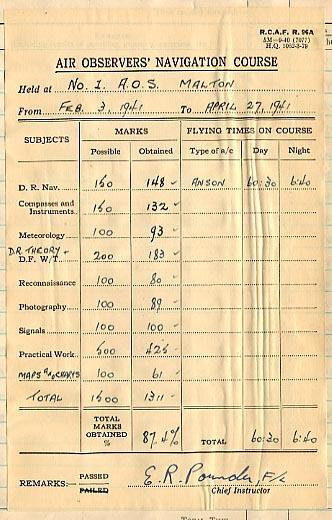 R.C.A.F. R. 96A
5M—9-40 (7077)
H.Q. 1062-3-79
AIR OBSERVERS' NAVIGATION COURSE
Held at No. 1. A.O.S. MALTON
From FEB. 3, 1941 To APRIL 27, 1941
SUBJECTS MARKS FLYING TIMES ON COURSE
Possible Obtained Type of a/c Day Night
D. R. Nav. 150 148 ANSON 60:30 6:40
Compasses and
Instruments 150 132
Meteorology 100 93
D.R. THEORY +
D.F. W/T. 200 183
Reconnaissance 100 80
Photography 100 89
Signals 100 100
Practical Work 500 425
MAPS AND CHARTS 100 61
TOTAL 1500 1311
TOTAL
MARKS
OBTAINED
% 87.4% TOTAL 60:30 6:40
REMARKS:— PASSED
FAILED
E. R. Pounder F/L
Chief Instructor